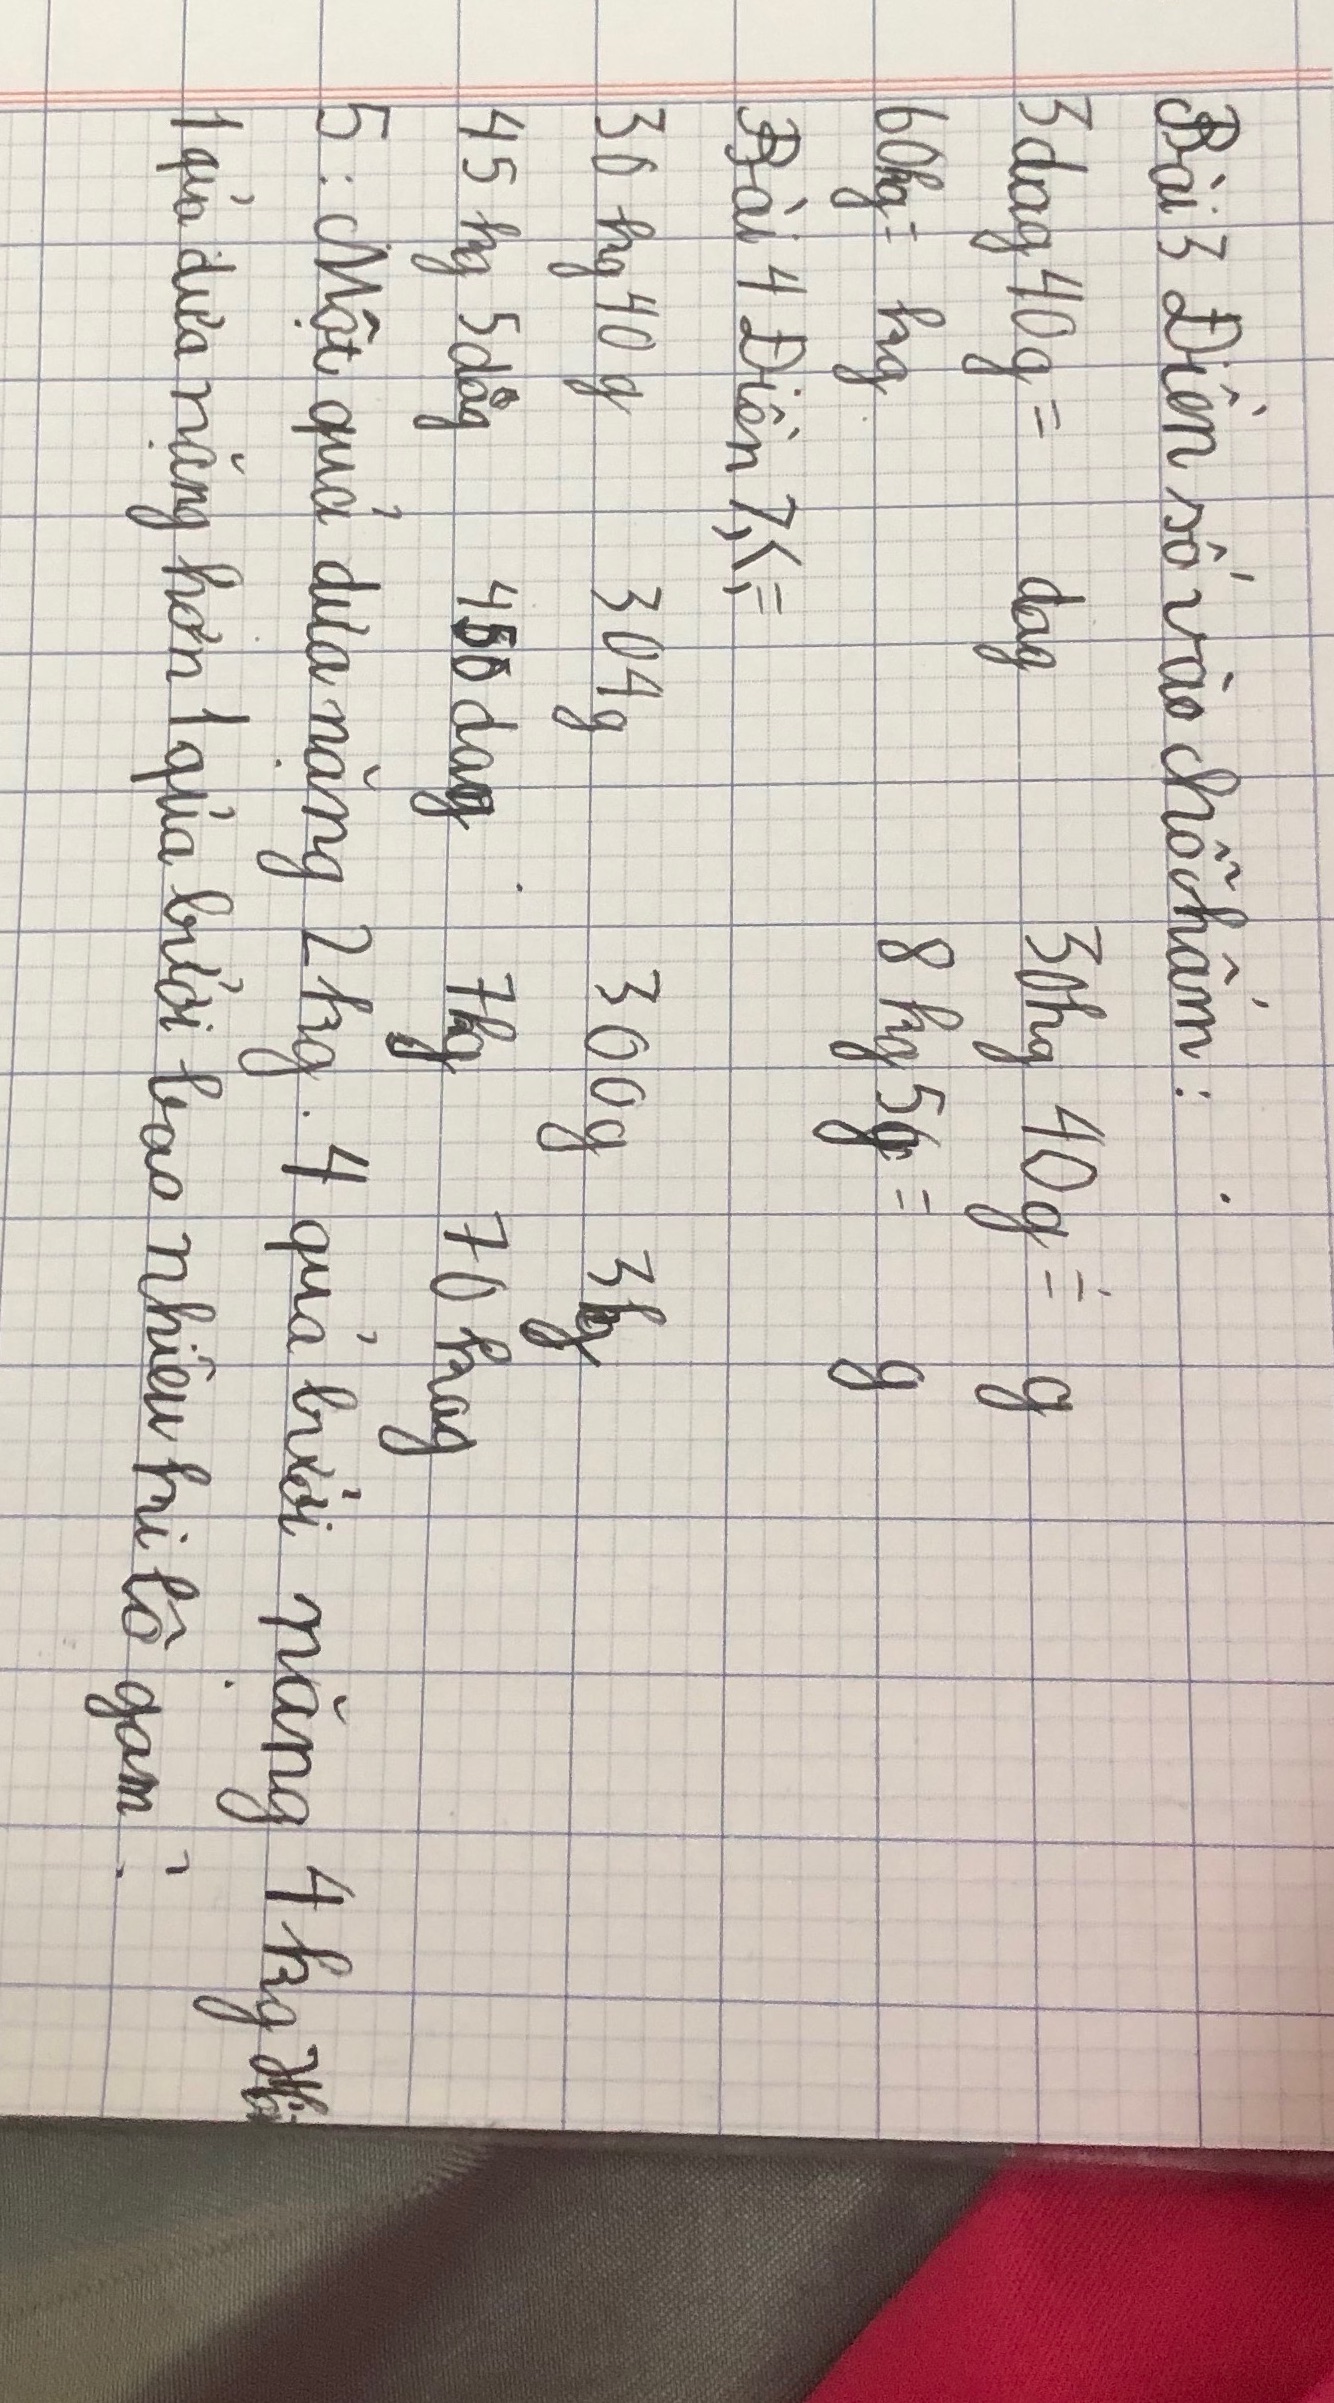 Bài 3 Điền số vào chỗ chấm:
3dag 40g = dag 30hg 40g = g
60hg = hg 8 hg 5g = g
Bài 4 Điền >, <, =
30 hg 40 g 304g 300g 3hg
45 hg 5dag 450 dag 7hg 70 hag
5: Một quả dưa nặng 2 kg. 4 quả bưởi nặng 4 kg Hỏi
1 quả dưa nặng hơn 1 quả bưởi bao nhiêu ki lô gam?